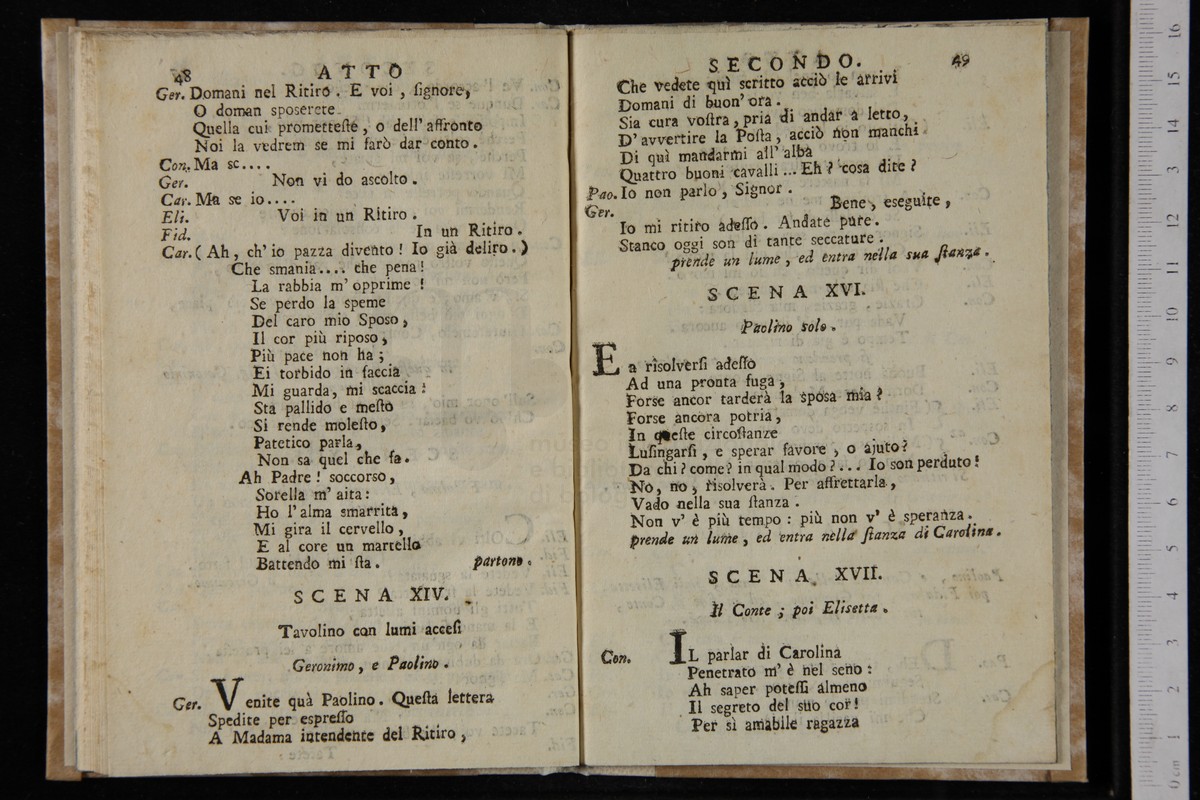 48 ATTO
Ger. Domani nel Ritiro. E voi, ſignore,
O doman spoſerete
Quella cui prometteſte, o dell' affronto
Noi la vedrem se mi farò dar conto.
Con. Ma se....
Ger. Non vi do ascolto.
Car. Ma se io....
Eli. Voi in un Ritiro.
Fid. In un Ritiro.
Car. (Ah, ch' io pazza divento! Io già deliro.)
Che smania.... che pena!
La rabbia m' opprime!
Se perdo la speme
Del caro mio Sposo,
Il cor più riposo,
Più pace non ha;
Ei torbido in faccia
Mi guarda, mi scaccia!
Sta pallido e meſto
Si rende moleſto,
Patetico parla,
Non sa quel che fa.
Ah Padre! soccorso,
Sorella m' aita:
Ho l' alma smarrita,
Mi gira il cervello,
E al core un martello
Battendo mi ſta. partono.
SCENA XIV.
Tavolino con lumi acceſi
Geronimo, e Paolino.
Ger. Venite quà Paolino. Queſta lettera
Spedite per espreſſo
A Madama intendente del Ritiro,
SECONDO. 49
Che vedete quì scritto acciò le arrivi
Domani di buon' ora.
Sia cura voſtra, pria di andar a letto,
D' avvertire la Poſta, acciò non manchi
Di quì mandarmi all' alba
Quattro buoni cavalli... Eh? cosa dite?
Pao. Io non parlo, Signor.
Ger. Bene, eseguite,
Io mi ritiro adeſſo. Andate pure.
Stanco oggi son di tante seccature.
prende un lume, ed entra nella sua ſtanza.
SCENA XVI.
Paolino solo.
Ea risolverſi adeſſo
Ad una pronta fuga,
Forse ancor tarderà la sposa mia?
Forse ancora potria,
In queſte circoſtanze
Luſingarſi, e sperar favore, o ajuto?
Da chi? come? in qual modo?... Io son perduto!
No, no, risolverà. Per affrettarla,
Vado nella sua ſtanza.
Non v' è più tempo: più non v' è speranza.
prende un lume, ed entra nella ſtanza di Carolina.
SCENA XVII.
Il Conte; poi Elisetta.
Con. IL parlar di Carolina
Penetrato m' è nel seno:
Ah saper poteſſi almeno
Il segreto del suo cor!
Per sì amabile ragazza